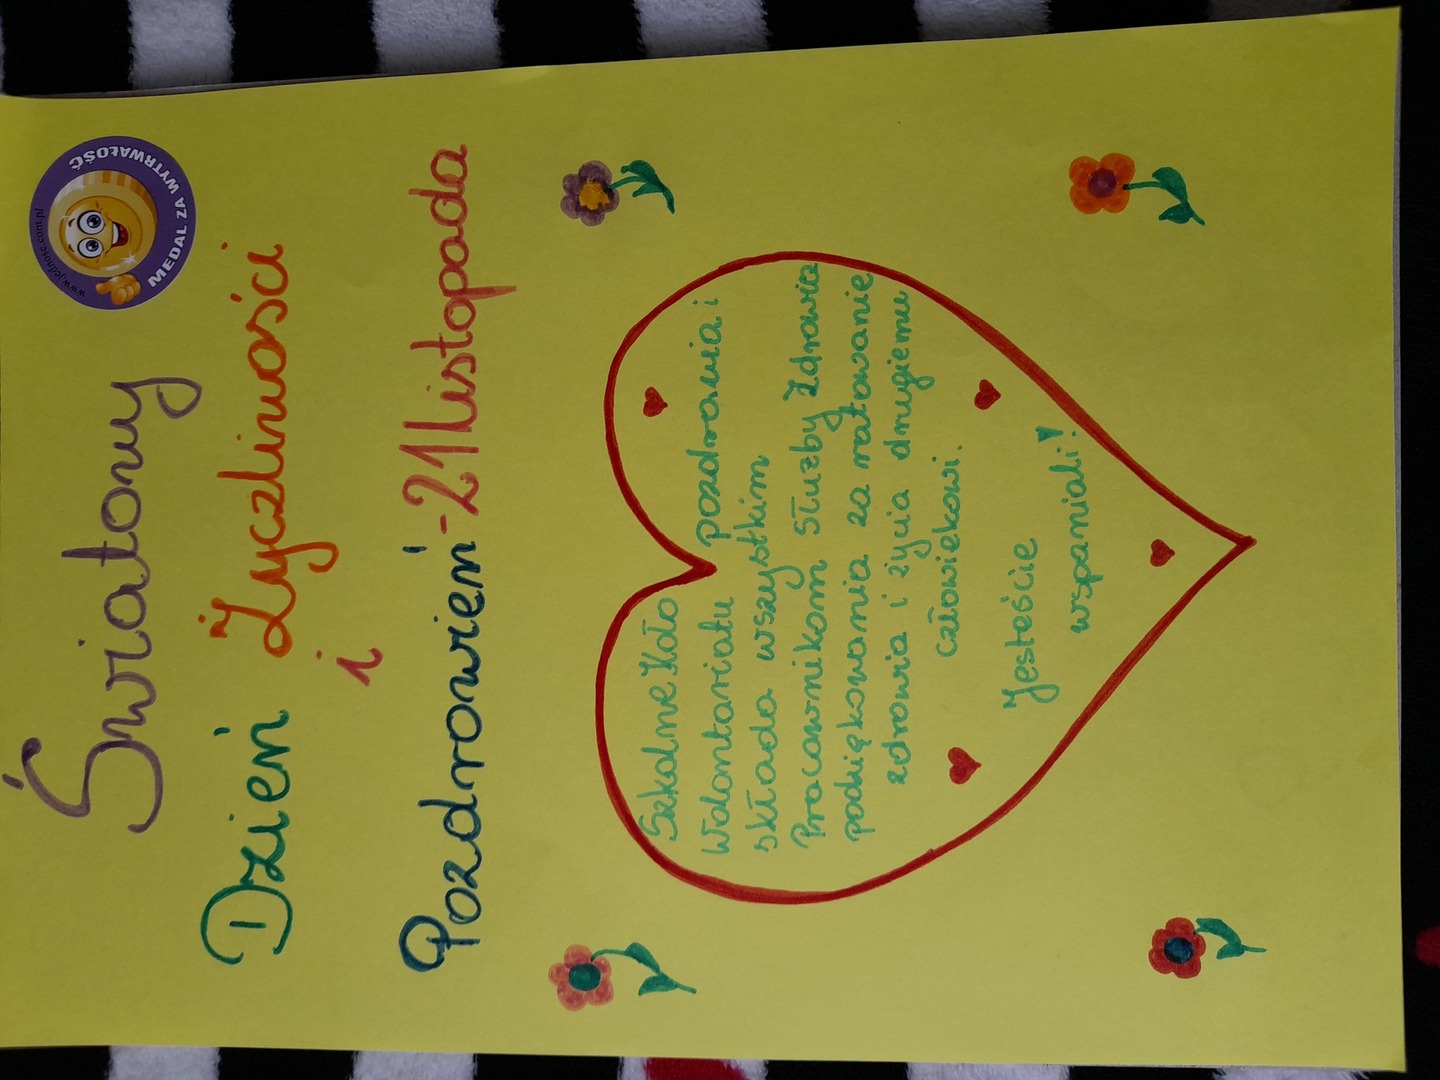 www.jednosc.com.pl
MEDAL ZA WYTRWAŁOŚĆ
Światowy
Dzień Życzliwości
i
Pozdrowień - 21 Listopada
Szkolne Koło
Wolontariatu pozdrawia i
składa wszystkim
Pracownikom Służby Zdrowia
podziękowania za ratowanie
zdrowia i życia drugiemu
człowiekowi.
Jesteście
wspaniali!